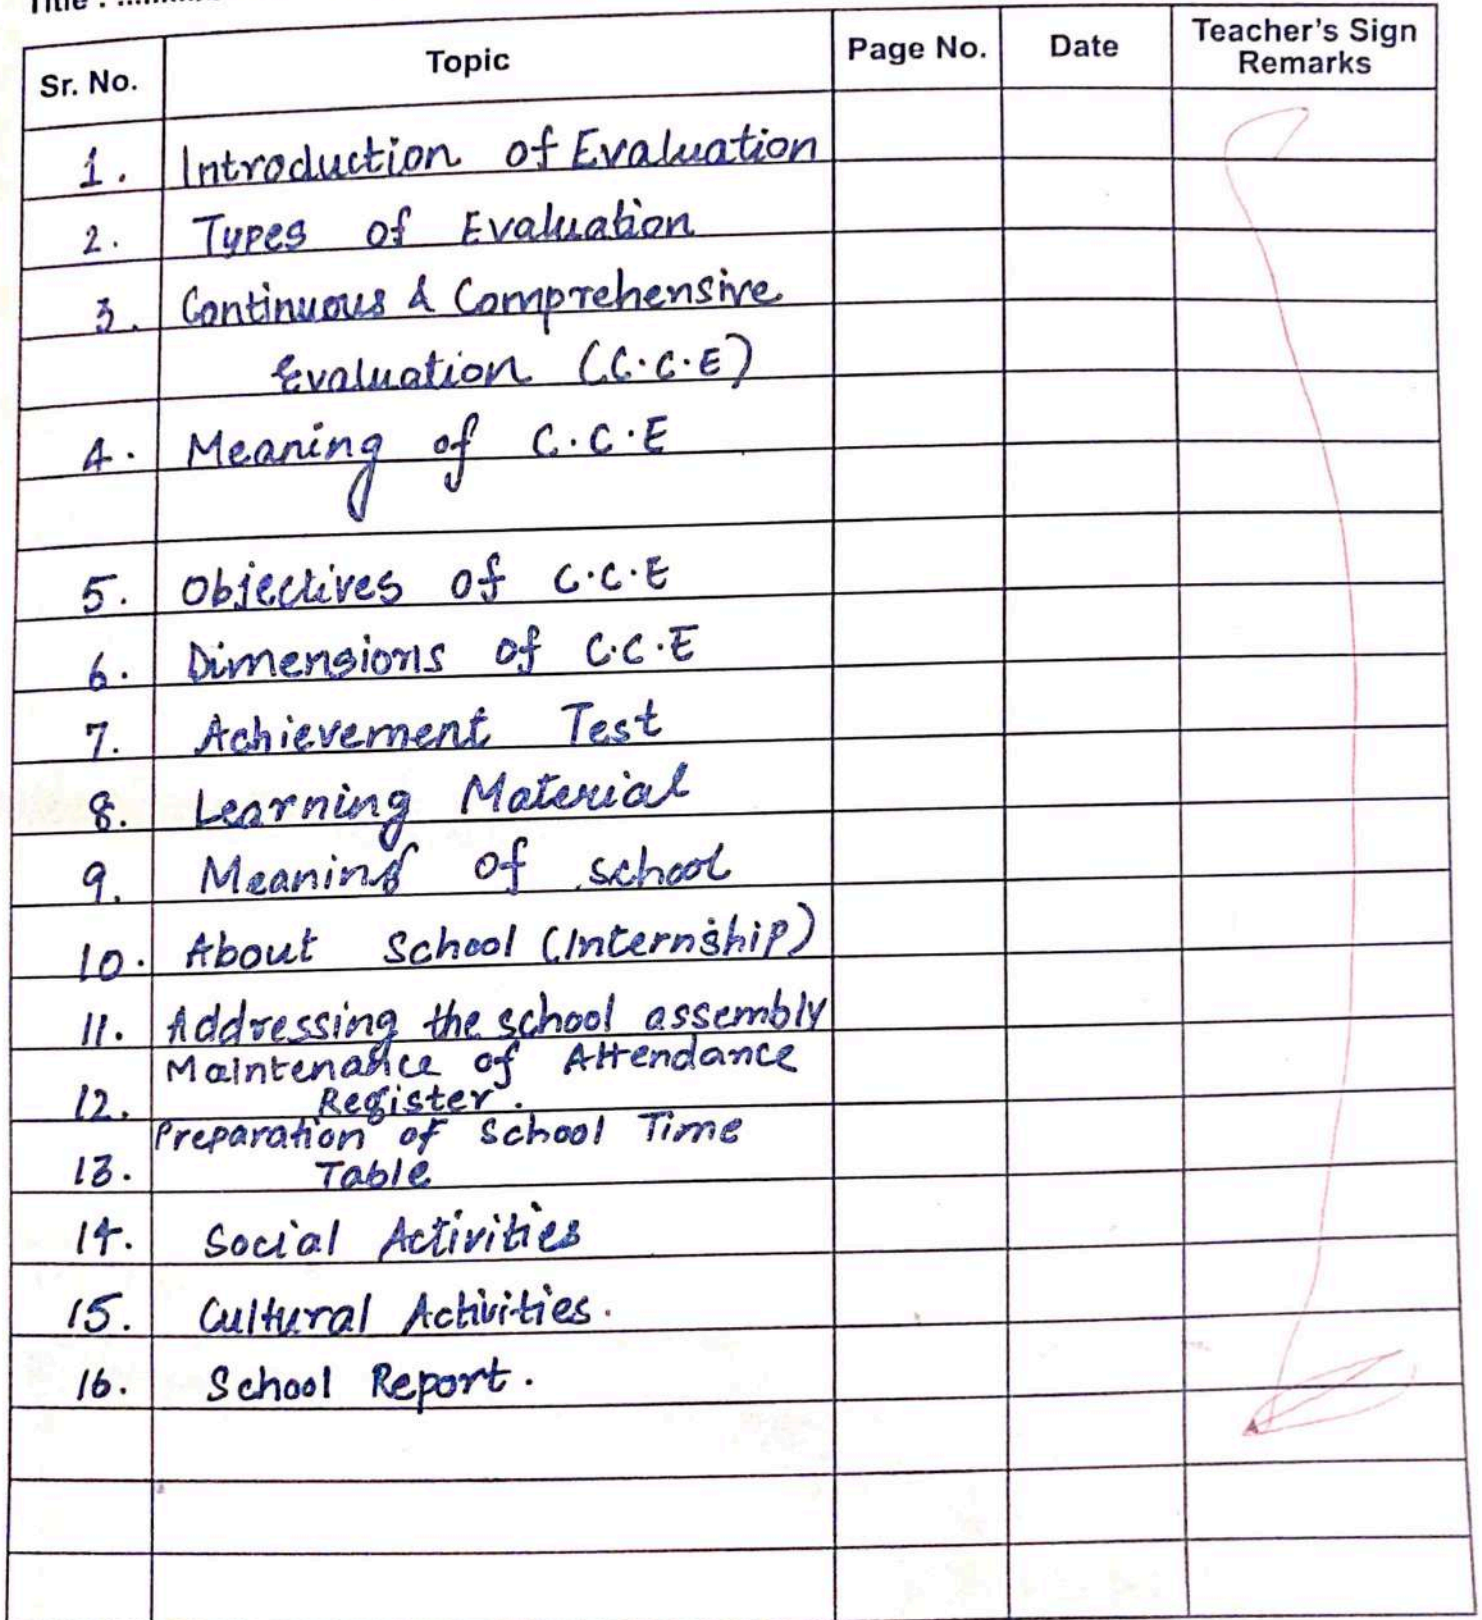 Title : ..........
Sr. No. Topic Page No. Date Teacher's Sign Remarks
1. Introduction of Evaluation
2. Types of Evaluation
3. Continuous & Comprehensive
Evaluation (C.C.E)
4. Meaning of C.C.E
5. Objectives of C.C.E
6. Dimensions of C.C.E
7. Achievement Test
8. Learning Material
9. Meaning of school
10. About School (Internship)
11. Addressing the school assembly
12. Maintenance of Attendance
Register.
13. Preparation of School Time
Table
14. Social Activities
15. Cultural Activities.
16. School Report.